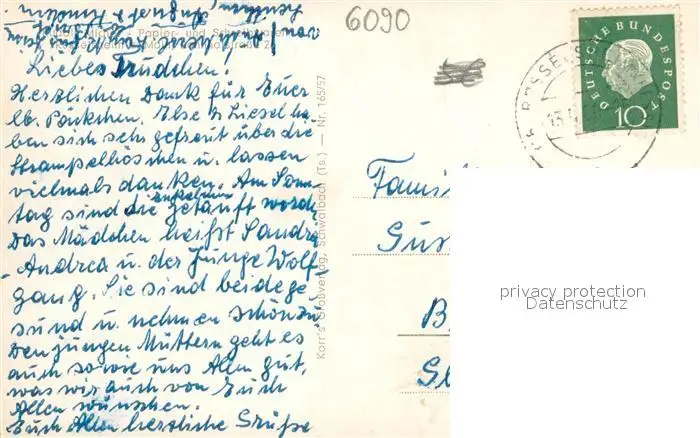 6090
DEUTSCHE BUNDESPOST
10
Liebes Trudchen.
Herzlichen Dank für Euer
lb. Päckchen. Else u. Liesel ha
ben sich sehr gefreut über die
Strampelhöschen u. lassen
vielmals danken. Am Sonn
tag sind die getauft word.
Das Mädchen heißt Sandra
Andrea u. der Junge Wolf
gang. Sie sind beide ge
sund u. nehmen schön zu
Den jungen Müttern geht es
auch sowie uns Allen gut,
was wir auch von Euch
Allen wünschen.
Euch Allen herzliche Grüße
Korr's Großverlag, Schwalbach (Ts.) — Nr. 165/57
Famil
Gus
B
privacy protection
Datenschutz